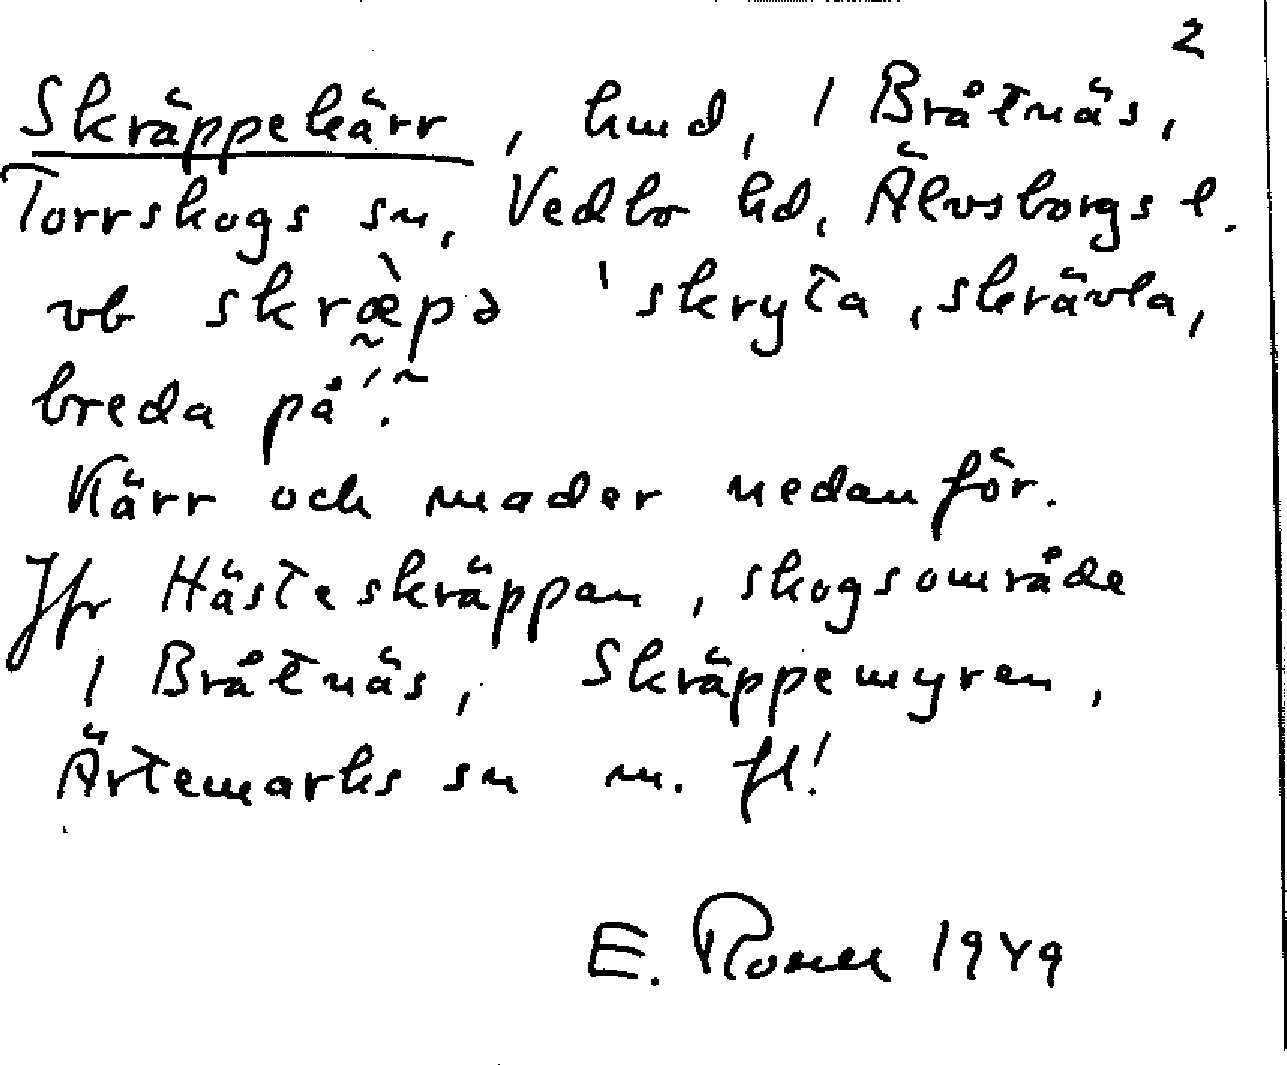 2
Skräppekärr, hmd, 1 Bråtnäs,
Torrskogs sn, Vedbo hd, Älvsborgs l.
vb skræ̰̀pə 'skryta, skrävla,
breda på'.~
Kärr och mader nedanför.
Jfr Hästeskräppan, skogsområde
1 Bråtnäs, Skräppemyren,
Ärtemarks sn m. fl!
E. 1949